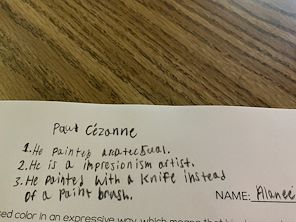 Paul Cézanne
1. He painted anatectual.
2. He is a impresionism artist.
3. He painted with a knife instead
of a paint brush.
NAME: Alanee
sed color in an expressive way, which means that